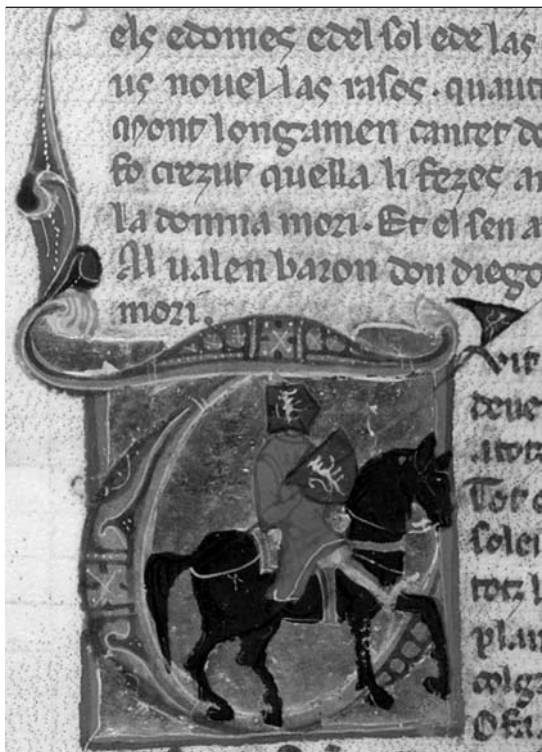 els edomes edel sol ede las
us nouellas rasos. quaut
Mont longamen cantet de
fo crezut quella li fezes am
la domna mori. Et el sen a
Al ualen baron don diego
mori.
deue
Tot
solei
totz l
plan
colga